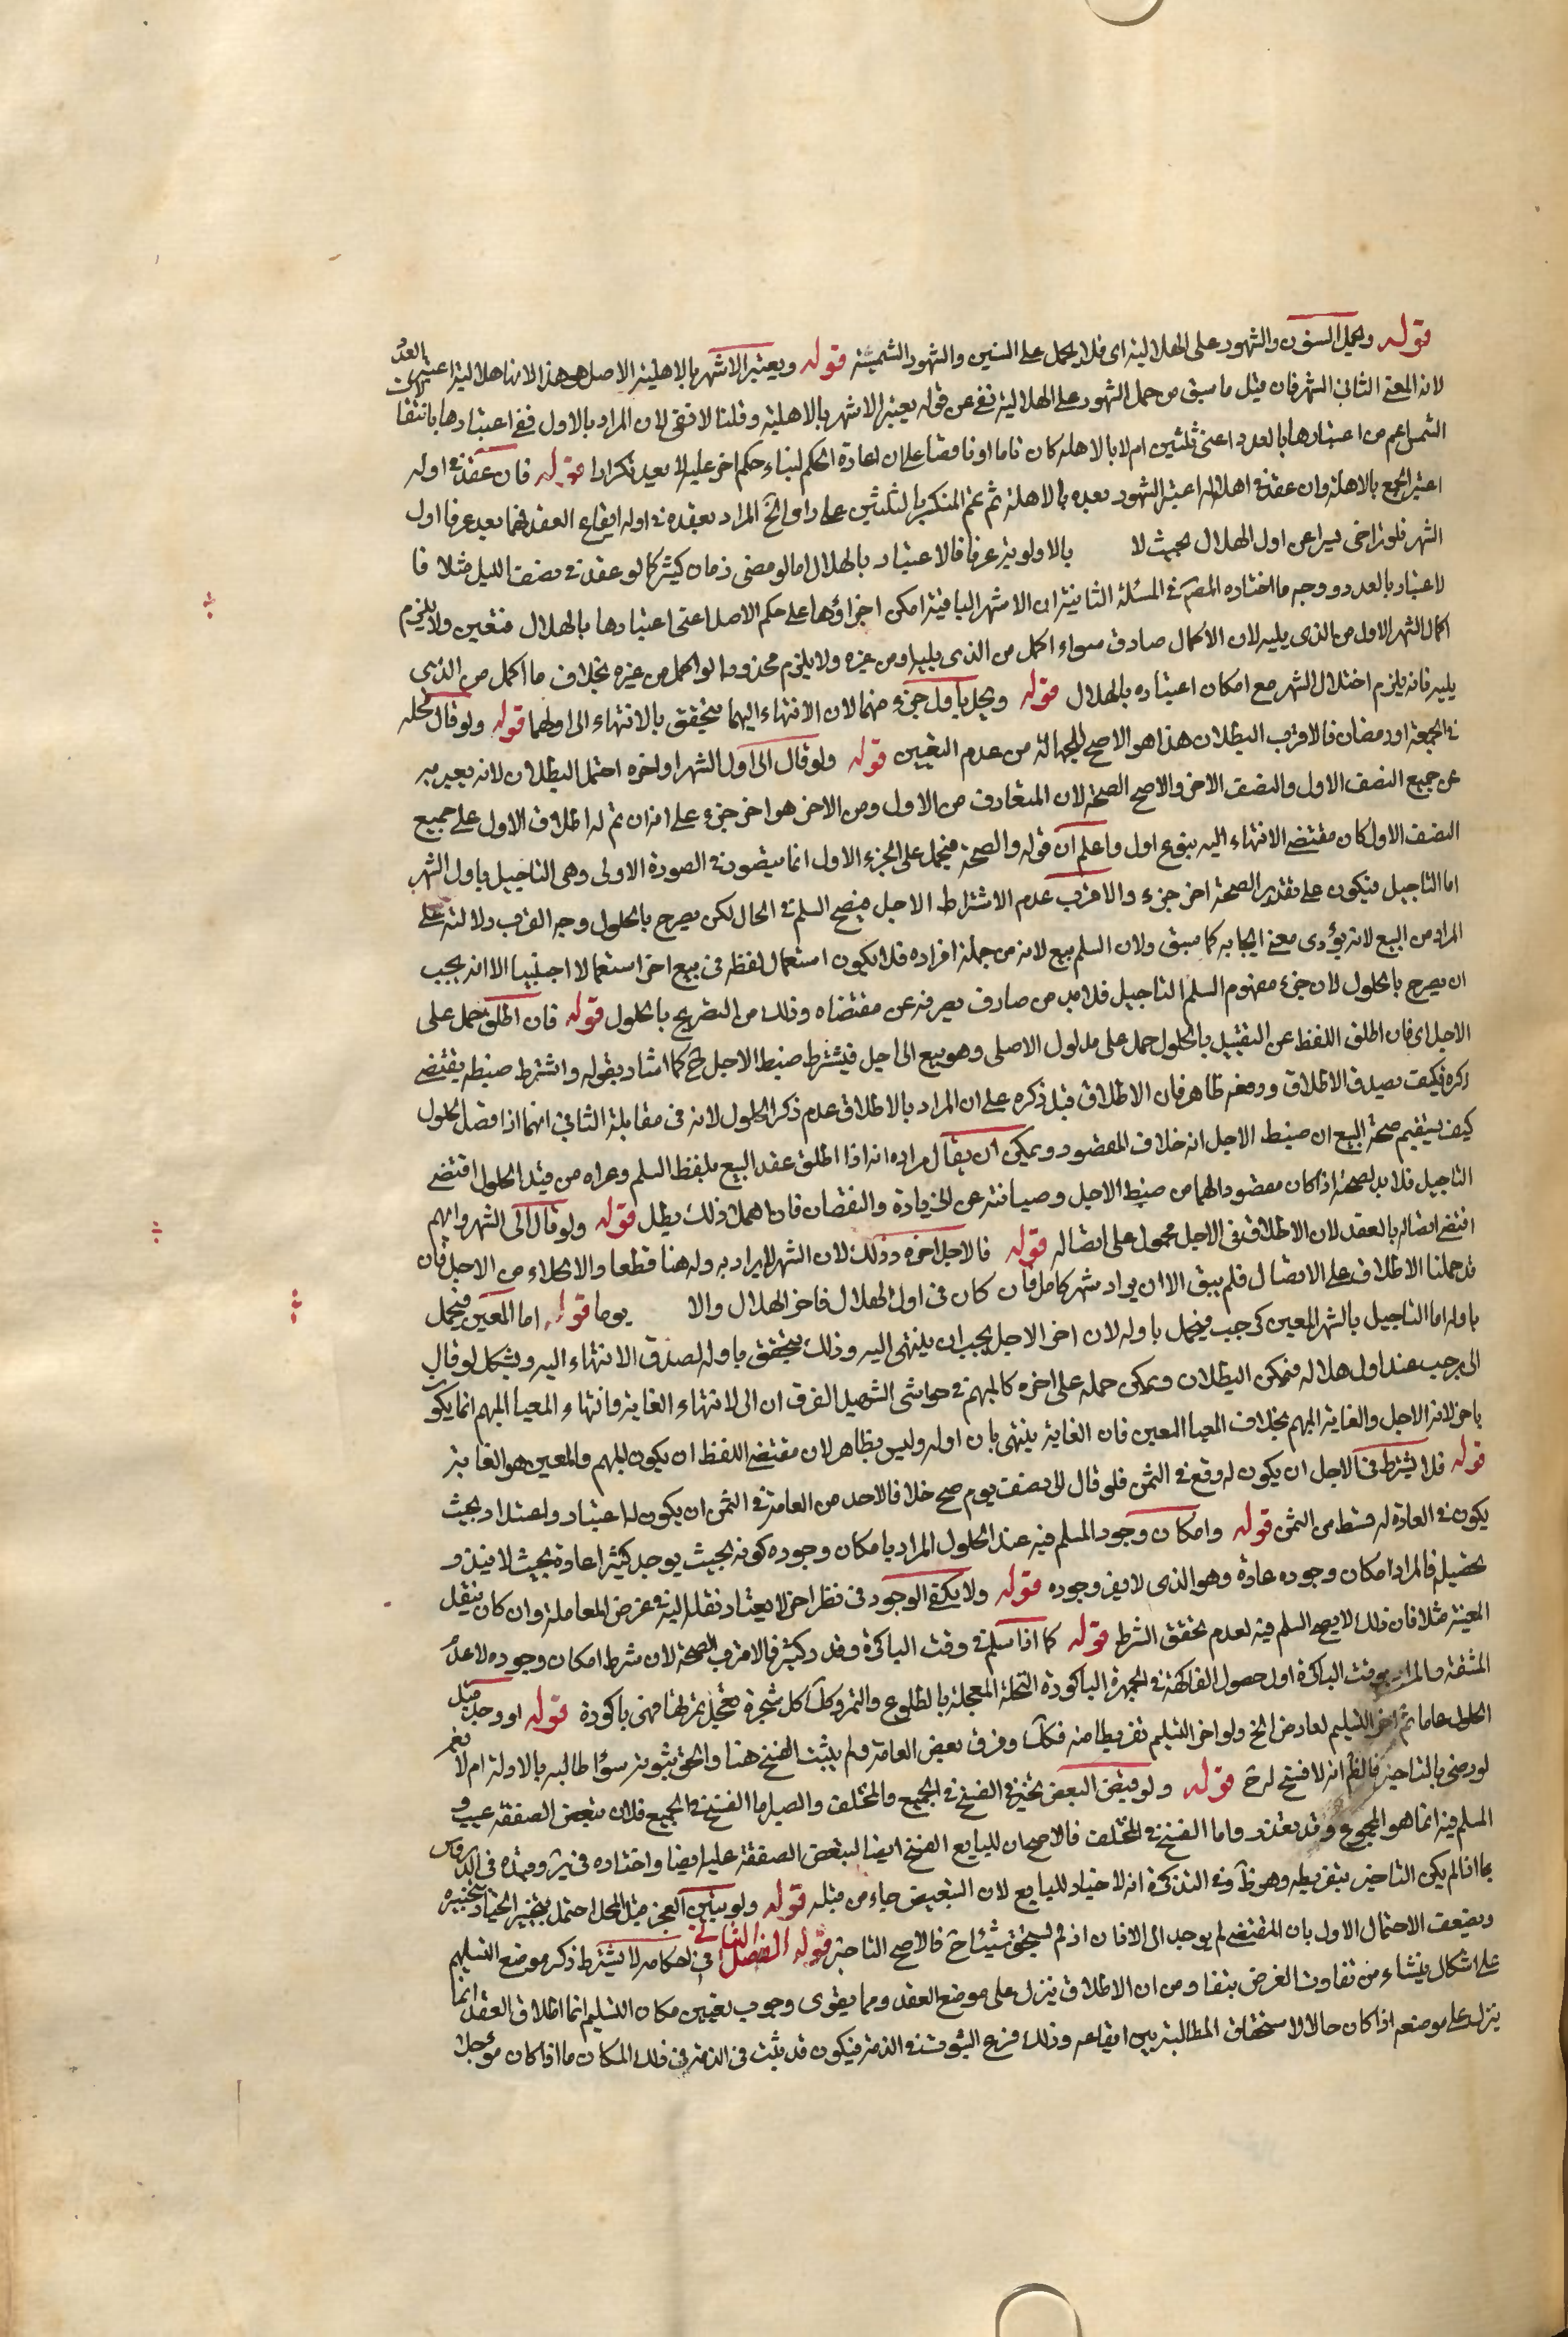 قوله ويحمل السنون والشهور على الهلالية اى فلا يحمل على السنين والشهور الشمسية قوله ويعتبر الاشهر بالاهلية الاصل هو هذا لانها هلالية اعتبر العدد
لانه المعنى الثانى الشهر فان قيل ما سبق من حمل الشهور على الهلالية نغنى عن قوله يعتبر الاشهر بالاهلية وقلنا لا نغنى لان المراد بالاول نفى اعتبارها بانتقالات
الشمس اعم من اعتبارها بالعدد اعنى ثلثين ام لا بالاهله كان تاما او ناقصا على ان اعادة الحكم لبناء حكم اخر عليه لا يعد تكرارا قوله فان عقد فى اوله
اعتبر الجمع بالاهلة وان عقد فى اهلاله اعتبر الشهور بعده بالاهلة ثم يتم المنكسر بالثلثين على راى الخ المراد بعقده فى اوله ايقاع العقد فيما يعد عرفا اول
الشهر فلو تراخى يسيرا عن اول الهلال بحيث لا بالاولوية عرفا فالاعتبار بالهلال اما لو مضى زمان كثير كما لو عقد فى نصف الليل مثلا فا
لاعتبار بالعدد ووجه ما اختاره المص فى المسئلة الثانية ان الاشهر الباقية امكن اجراؤها على حكم الاصل اعنى اعتبارها بالهلال فتعين ولا يلزم
اكمال الشهر الاول من الذى يليه لان الاكمال صادق سواء اكمل من الذى يليه او من غيره ولا يلزم محذور لو اكمل من غيره بخلاف ما اكمل من الذى
يليه فانه يلزم اختلال الشهر مع امكان اعتباره بالهلال قوله ويحل باول جزء منهما لان الانتهاء اليهما يتحقق بالانتهاء الى اولهما قوله ولو قال محله
فى الجمعة او رمضان فالاقرب البطلان هذا هو الاصح للجهالة من عدم التعيين قوله ولو قال الى اول الشهر او اخره احتمل البطلان لانه يعبر به
عن جميع النصف الاول والنصف الاخر والاصح الصحة لان المتعارف من الاول ومن الاخر هو اخر جزء على انه ان تم له اطلاق الاول على جميع
النصف الاول كان مقتضى الانتهاء اليه اول واعلم ان قوله والصحة فيحمل على الجزء الاول انما يتصور فى الصورة الاولى وهى التاجيل باول الشهر
اما التاجيل فيكون على تقدير الصحة اخر جزء والاقرب عدم الاشتراط الاجل فيصح السلم فى الحال لكن يصرح بالحلول وجه القرب دلالته على
المراد من البيع لانه يؤدى معنى ايجابه كما سبق ولان السلم بيع لانه من جملة افراده فلا يكون استعمال لفظه فى بيع اخر استعمالا اجنبيا الا انه يجب
ان يصرح بالحلول لان جزء مفهوم السلم التاجيل فلا بد من صارف يصرفه عن مقتضاه وذلك من التصريح بالحلول قوله فان اطلق حمل على
الاجل اى فان اطلق اللفظ عن التقييد بالحلول حمل على مدلول الاصلى وهو بيع الى اجل فيشترط ضبط الاجل ح كما اشار بقوله واشترط ضبطه يقتضى
ذكره فكيف يصدق الاطلاق ودفعه ظاهر فان الاطلاق قبل ذكره على ان المراد بالاطلاق عدم ذكر الحلول لانه فى مقابلة الثانى انهما اذا قصدا الحلول
كيف يستقيم صحة البيع ان ضبط الاجل انه خلاف المقصود ويمكن ان يقال مراده انه اذا اطلق عقد البيع بلفظ السلم وعراه من قيد الحلول اقتضى
التاجيل فلا بد لصحته اذا كان مقصودا لهما من ضبط الاجل وصيانته عن الزيادة والنقصان فان اهمل ذلك بطل قوله ولو قال الى الشهر وابهم
اقتضى اتصاله بالعقد لان الاطلاق فى الاجل محمول على اتصاله قوله فالاجل اخره وذلك لان الشهر لا يراد به وله هنا قطعا والا لخلاء من الاجل فان
قد حملنا الاطلاق على الاتصال فلم يبق الا ان يراد شهر كامل فان كان فى اول الهلال فاخر الهلال والا يوما قوله اما المعين فيحمل
باوله اما التاجيل بالشهر المعين كرجب فيحمل باوله لان اخر الاجل يجب ان ينتهى اليه وذلك يتحقق باوله لصدق الانتهاء اليه ويشكل لو قال
الى رجب عند اول هلاله فيمكن البطلان ويمكن حمله على اخره كالمبهم فى حواشى الشهيد الفرق ان الى لانتهاء الغاية وانتهاء المغيا المبهم انما يكون
باخره لانه الاجل والغاية المبهم بخلاف المغيا المعين فان الغاية ينتهى بان اوله وليس بظاهر لان مقتضى اللفظ ان يكون المبهم والمعين هو الغاية
قوله فلا يشترط فى الاجل ان يكون له وقع فى الثمن فلو قال الى نصف يوم صح خلافا لاحد من العامة فى الثمن ان يكون له اعتبار واعتداد بحيث
يكون فى العادة له قسط من الثمن قوله وامكان وجود المسلم فيه عند الحلول المراد بامكان وجوده كونه بحيث يوجد كثيرا عادة بحيث لا يندر
تحصيله فالمراد امكان وجوده عادة وهو الذى لا يعز وجوده قوله ولا يكفى الوجود فى نظر اخر لا يعتاد نقله اليه فى غرض المعاملة وان كان ينقل
المعينة مثلا فان ذلك لا يصح السلم فيه لعدم تحقق الشرط قوله كما اذا سلم فى وقت الباكرة وقد در كثير فالاقرب الصحة لان شرط امكان وجوده لا عدم
المشقة والمراد بوقت الباكرة اول حصول الفاكهة فى الجمهرة الباكورة النخلة المعجلة بالطلوع والثمر وكل شجرة تعجيل ثمرتها فهى باكورة قوله او وجد قبل
الحلول عاما ثم اخر التسليم لعارض الخ ولو اخر التسليم تفريطا منه فكك وفرق بعض العامة ولم يثبت الفسخ هنا والحق ثبوته سواء طالبه بالاولة ام لا نعم
لو رضى بالتاخير فالظ انه لا فسخ له ح قوله ولو قبض البعض تخير فى الفسخ فى الجميع والمختلف والصبر اما الفسخ فى الجميع فلان تبعض الصفقة عيب و
المسلم فيه انما هو المجموع وقد تعذر واما الفسخ فى المختلف فالاصح ان للبايع الفسخ ايضا لتبعض الصفقة عليه ايضا واختاره فى ير وقيده فى الدروس
بما اذا لم يكن التاخير بتفريطه وهو ظ وفى التذكرة انه لا خيار للبايع لان التبعيض جاء من قبله قوله ولو تبين العجز قبل المحل احتمل تنجيز الخيار وتاخيره
ويضعف الاحتمال الاول بان المقتضى لم يوجد الى الان اذ لم يستحق شيئا ح فالاصح التاخير قوله الفصل الثانى فى احكامه لا يشترط ذكر موضع التسليم
على اشكال ينشاء من تفاوت الغرض بتفاوته ومن ان الاطلاق ينزل على موضع العقد ومما يقوى وجوب تعيين مكان التسليم انما اطلاق العقد انما
ينزل على موضعه اذا كان حالا لاستحقاق المطالبة بين ايقاعه وذلك فرع الثبوت فى الذمة فيكون قد ثبت فى الذمة فى ذلك المكان ما اذا كان مؤجلا